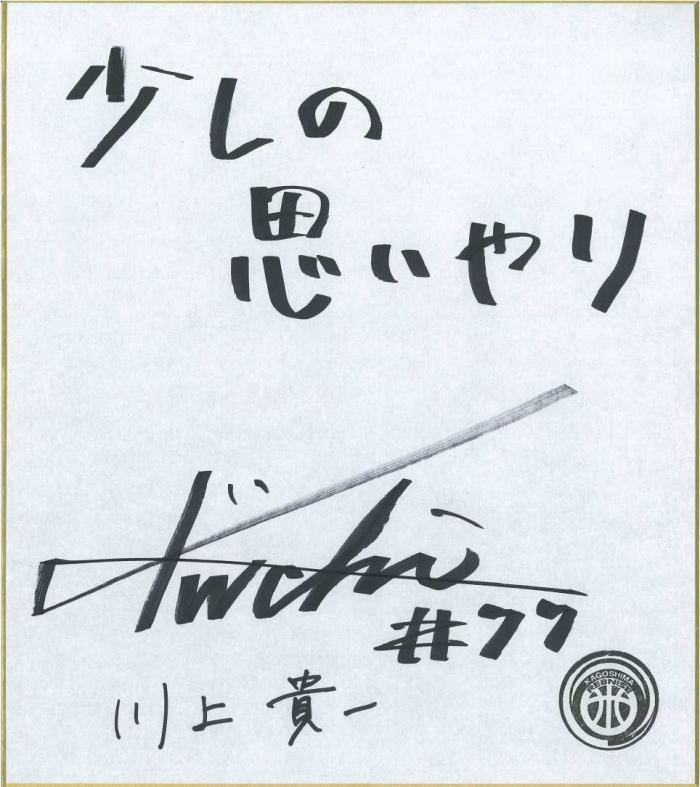 少しの
思いやり
#77
川上 貴一
KAGOSHIMA
REBNISE